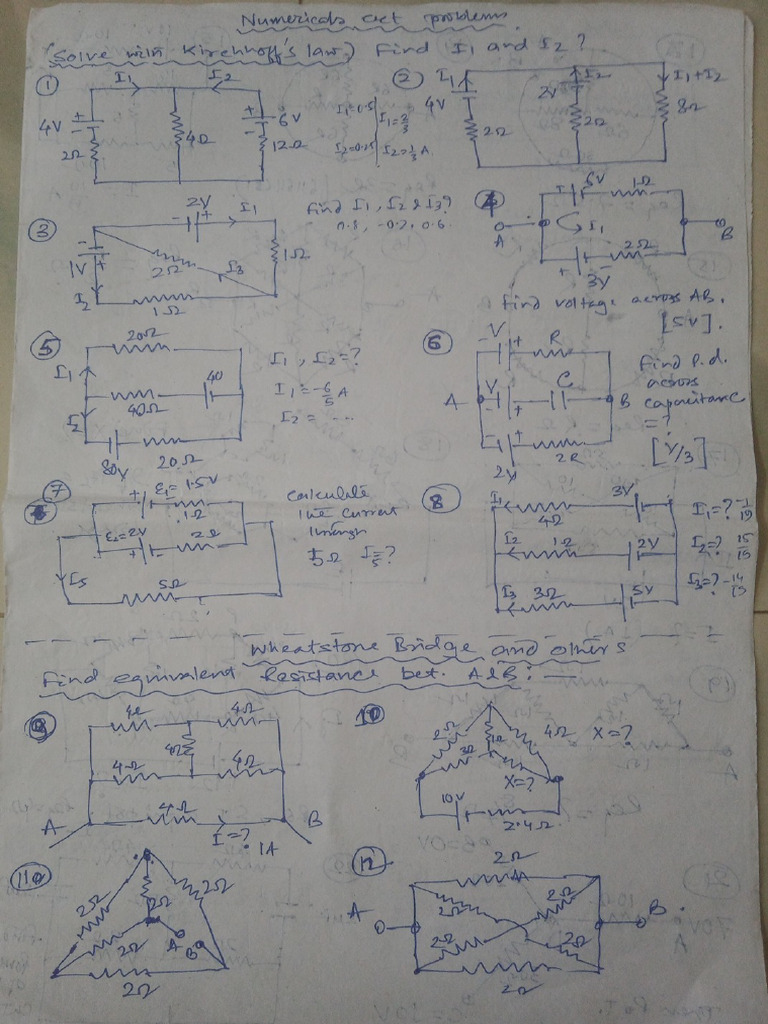 Numericals ckt problems
(Solve with Kirchhoff's law) Find I1 and I2 ?
① I1 I2
4V 2Ω 4Ω 6V 12Ω
I1=0.5 I1=2/3
I2=0.25 I2=1/3 A
② I1 I2 I1+I2
4V 2V 8Ω
2Ω 2Ω
③ 2V I1
1V 2Ω I3 1Ω
I2 1Ω
Find I1, I2 & I3?
0.8, -0.2, 0.6
④ 6V 1Ω
A I1 B
3V 2Ω
Find voltage across AB.
[5V].
⑤ 20Ω
I1 40
I2 40Ω
80V 20Ω
I1, I2 = ?
I1 = -6/5 A
I2 = ....
⑥ V R
A V C B
2V 2R
Find P.d.
across
capacitance
= ?
[V/3]
⑦ ε1=1.5V
1Ω
ε2=2V 2Ω
I5 5Ω
Calculate
the current
through
5Ω I5=?
⑧ I1 4Ω 3V
I2 1Ω 2V
I3 3Ω 5V
I1=? -1/19
I2=? 15/19
I3=? -14/19
Wheatstone Bridge and others
Find equivalent Resistance bet. A & B: —
⑨ 4Ω 4Ω
4Ω
4Ω 4Ω
4Ω
A I=? B
1A
⑩ 2Ω 1Ω 4Ω X=?
3Ω X=?
10V 2.4Ω
⑪ 2Ω 2Ω 2Ω
2Ω A B
2Ω
⑫ 2Ω
2Ω 2Ω
A B
2Ω 2Ω
2Ω